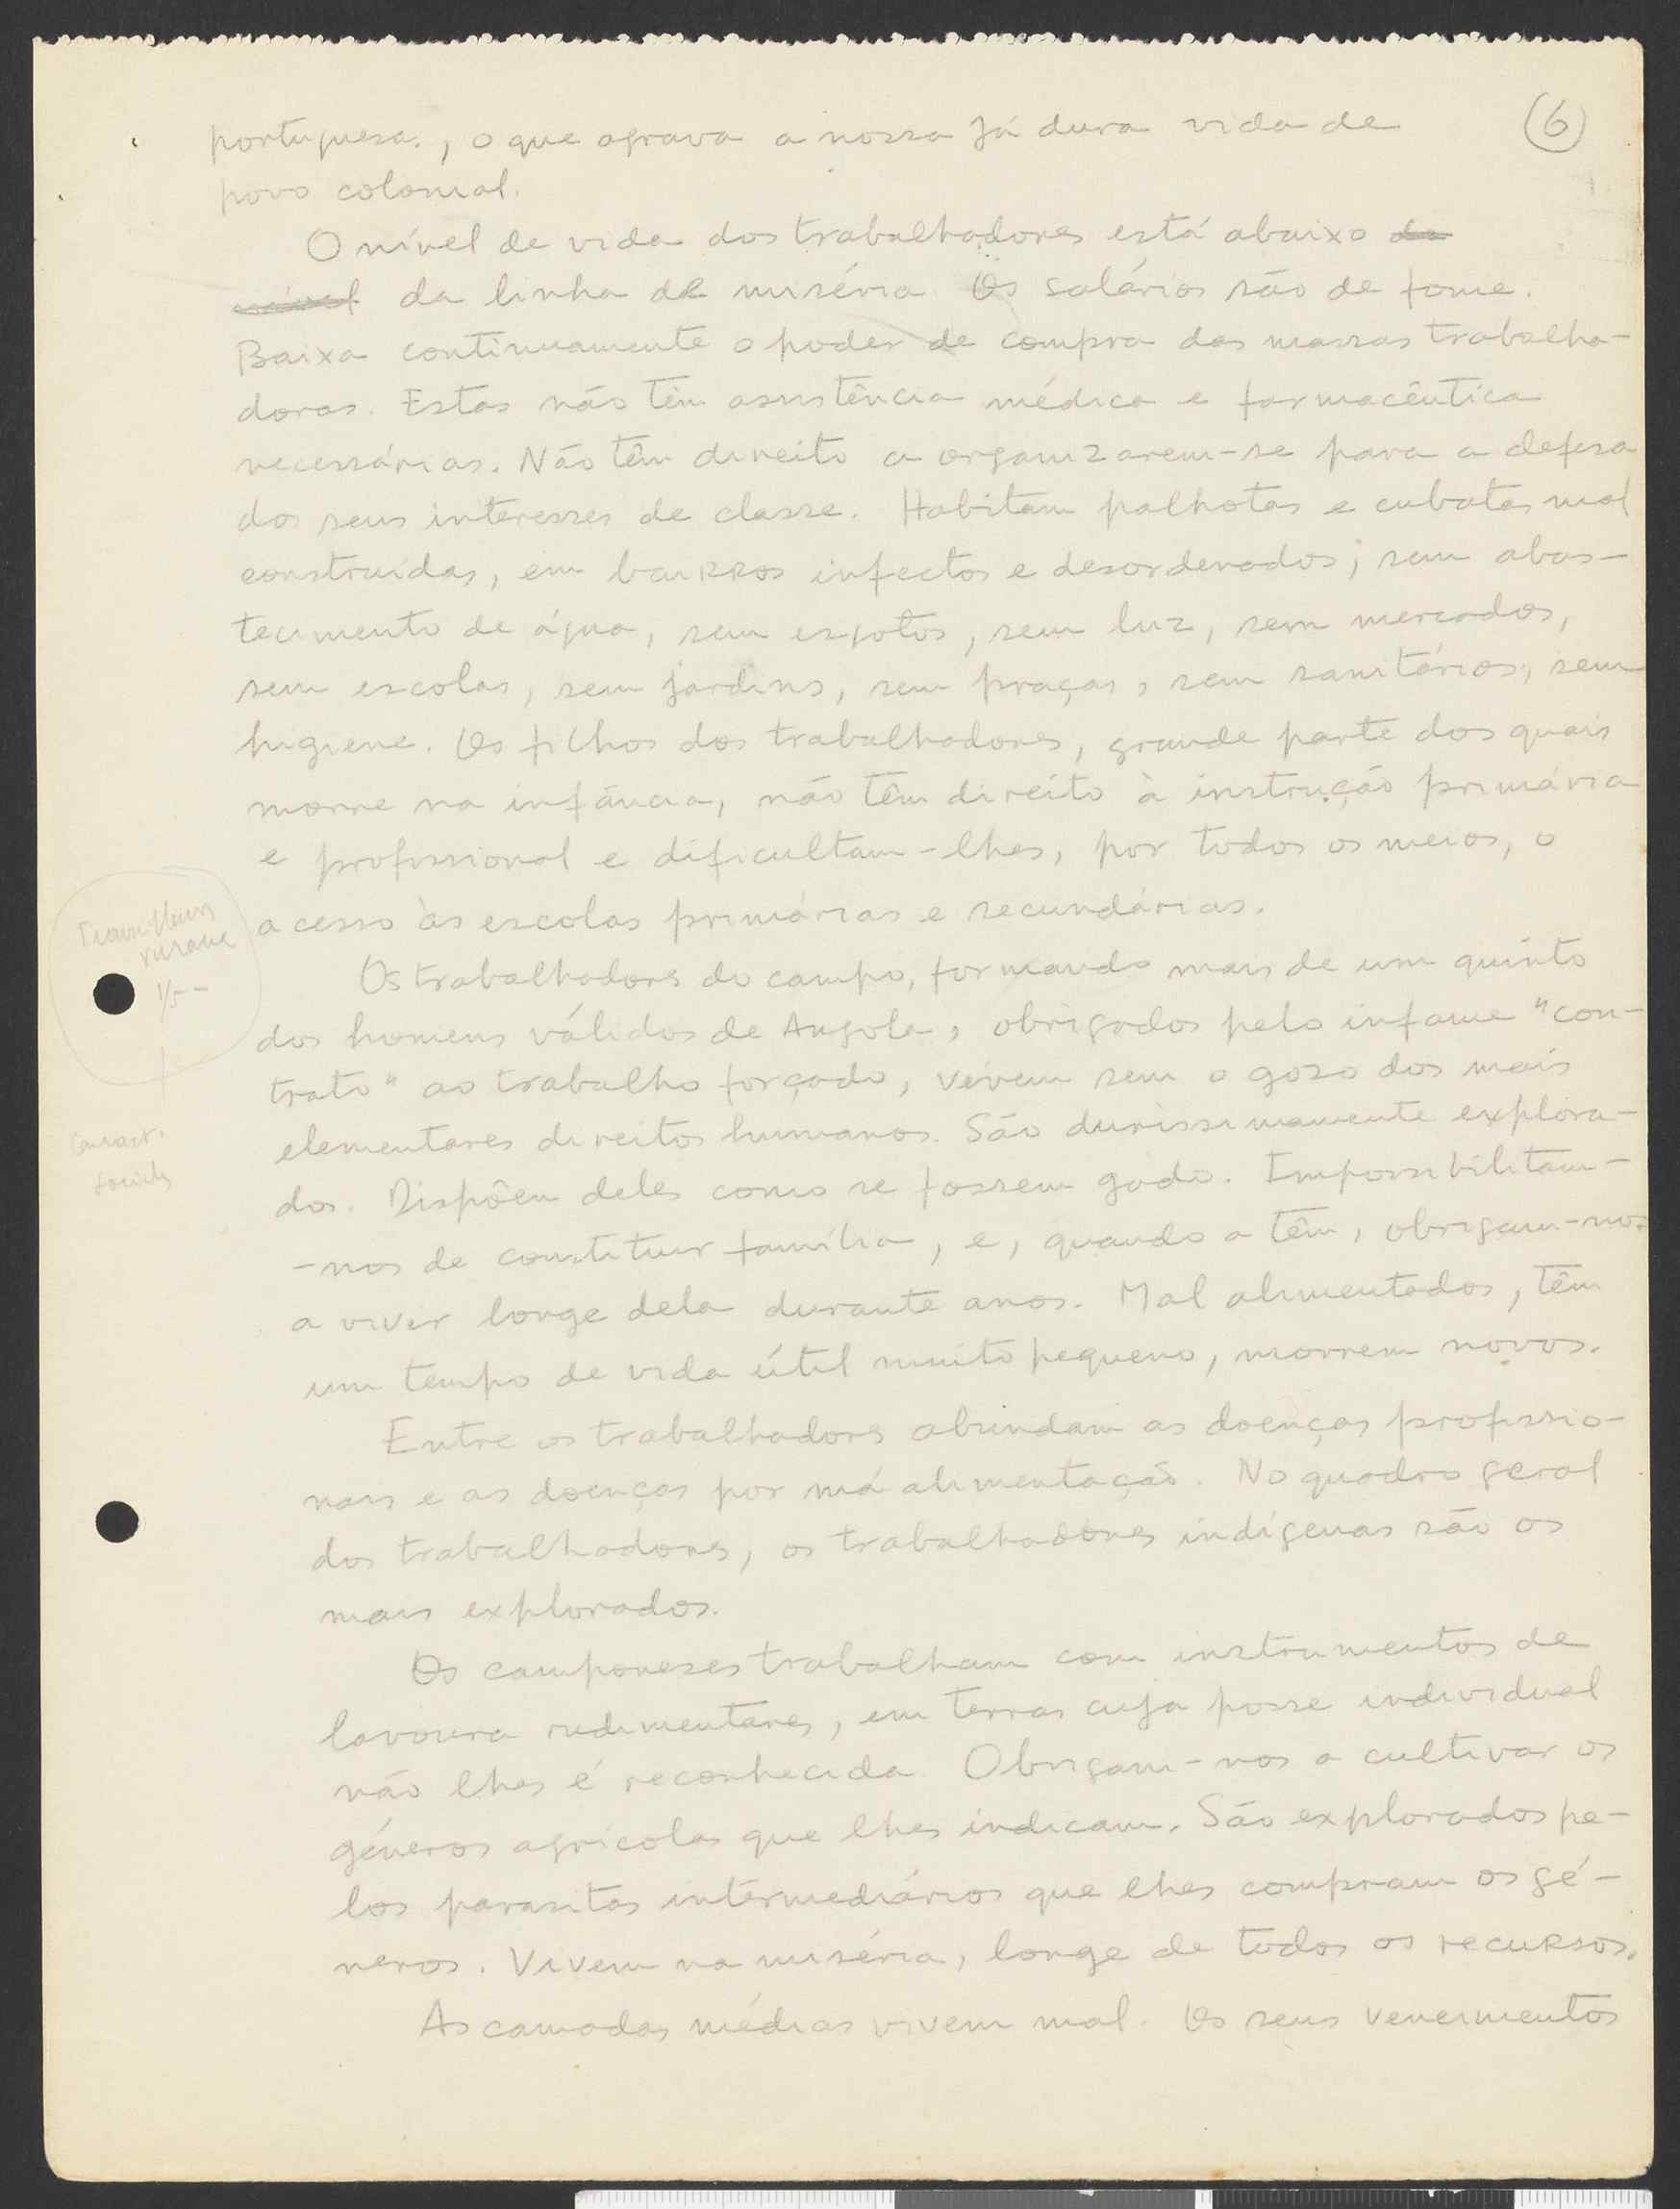 6
portuguesa., o que agrava a nossa já dura vida de
povo colonial.
O nível de vida dos trabalhadores está abaixo do
nível da linha de miséria. Os salários são de fome.
Baixa continuamente o poder de compra das massas trabalha-
doras. Estas não têm assistência médica e farmacêutica
necessárias. Não têm direito a organizarem-se para a defesa
dos seus interesses de classe. Habitam palhotas e cubatas mal
construídas, em bairros infectos e desordenados; sem abas-
tecimento de água, sem esgotos, sem luz, sem mercados,
sem escolas, sem jardins, sem praças, sem sanitários, sem
higiene. Os filhos dos trabalhadores, grande parte dos quais
morre na infância, não têm direito à instrução primária
e profissional e dificultam-lhes, por todos os meios, o
acesso às escolas primárias e secundárias.
Os trabalhadores do campo, formando mais de um quinto
dos homens válidos de Angola, obrigados pelo infame "con-
trato" ao trabalho forçado, vivem sem o gozo dos mais
elementares direitos humanos. São durissimamente explora-
dos. Dispõem deles como se fossem gado. Impossibilitam-
-nos de constituir família, e, quando a têm, obrigam-nos
a viver longe dela durante anos. Mal alimentados, têm
um tempo de vida útil muito pequeno, morrem novos.
Entre os trabalhadores abundam as doenças profissio-
nais e as doenças por má alimentação. No quadro geral
dos trabalhadores, os trabalhadores indígenas são os
mais explorados.
Os camponeses trabalham com instrumentos de
lavoura rudimentares, em terras cuja posse individual
não lhes é reconhecida. Obrigam-nos a cultivar os
géneros agrícolas que lhes indicam. São explorados pe-
los parasitas intermediários que lhes compram os gé-
neros. Vivem na miséria, longe de todos os recursos.
As camadas médias vivem mal. Os seus vencimentos
1/5 -